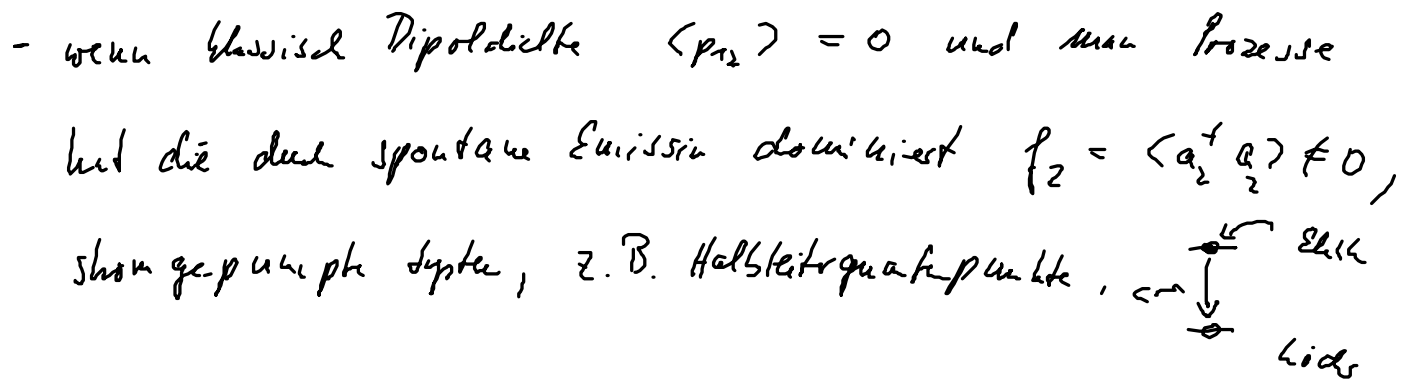 - wenn klassisch Dipoldichte ⟨p₁₂⟩ = 0 und man Prozesse
hat die durch spontane Emission dominiert f₂ = ⟨a₂† a₂⟩ ≠ 0,
strom gepumpte System, z.B. Halbleiterquantenpunkte.
Elektr
Löcher